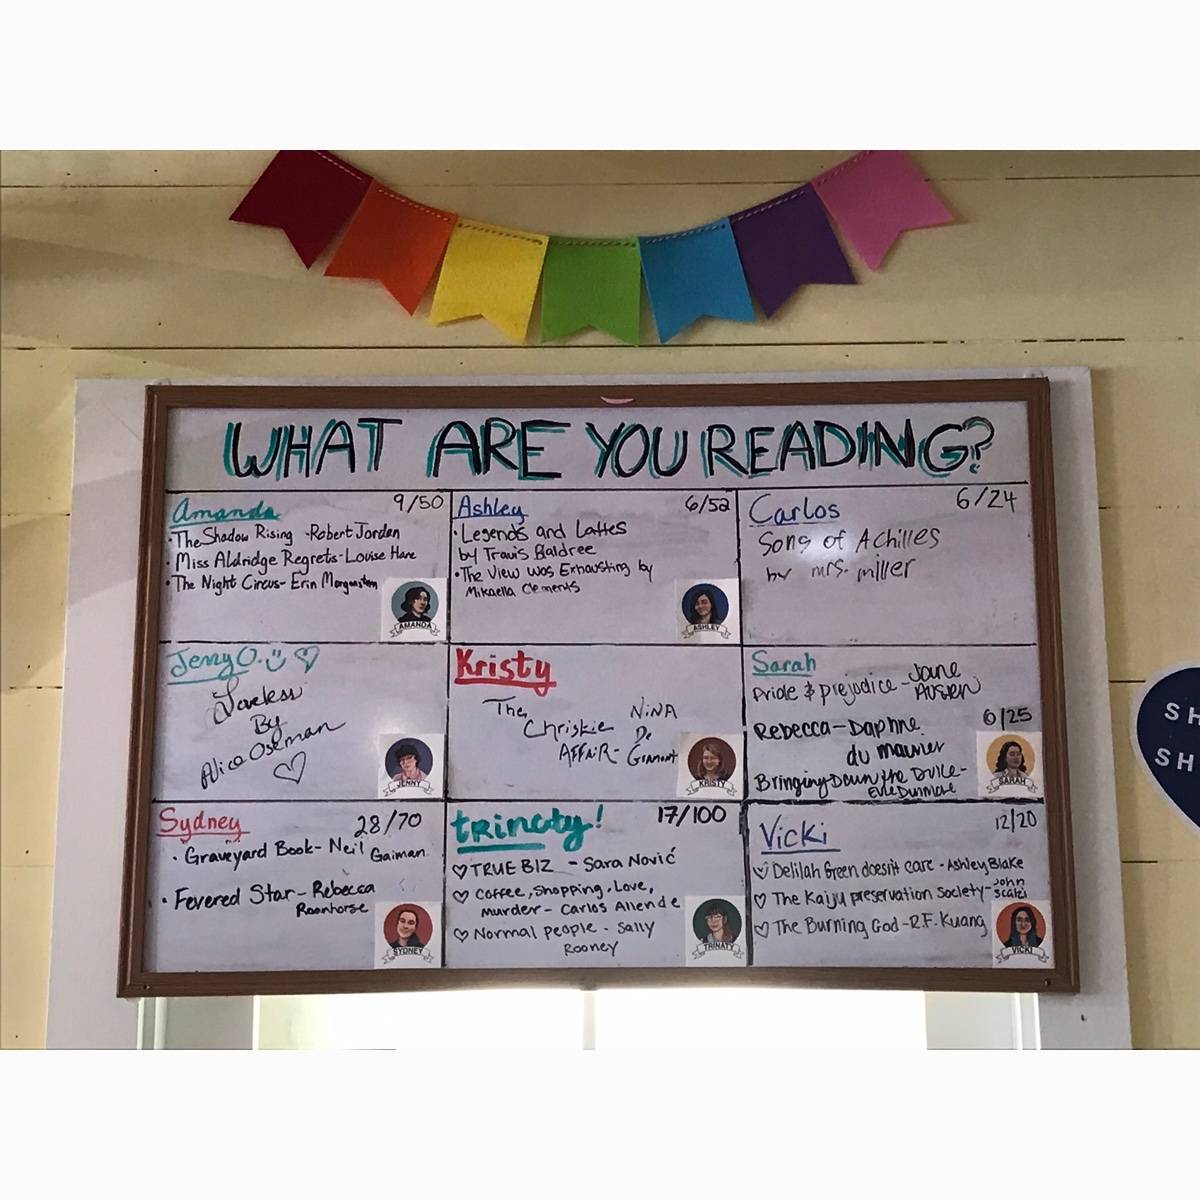 WHAT ARE YOU READING?
Amanda 9/50
· The Shadow Rising - Robert Jordan
· Miss Aldridge Regrets - Louise Hare
· The Night Circus - Erin Morgenstern
AMANDA
Ashley 6/52
· Legends and Lattes
by Travis Baldree
· The View Was Exhausting by
Mikaella Clements
ASHLEY
Carlos 6/24
Song of Achilles
by mrs. miller
Jenny O.
Loveless
By
Alice Oseman
JENNY
Kristy
The
Chriskie
AFFAiR - NiNA
De
Gramont
KRISTY
Sarah
Pride & prejudice - Jane
Austen
6/25
Rebecca - Daphne
du maurier
Bringing Down the Duke -
Evie Dunmore
SARAH
Sydney 28/70
· Graveyard Book - Neil
Gaiman
· Fevered Star - Rebecca
Roanhorse
SYDNEY
trinaty! 17/100
TRUE BIZ - Sara Nović
Coffee, Shopping, Love,
murder - Carlos Allende
Normal people - Sally
Rooney
TRINATY
Vicki 12/20
Delilah Green doesn't care - Ashley Blake
The Kaiju preservation Society - John
Scalzi
The Burning God - R.F. Kuang
VICKI
SH
SH